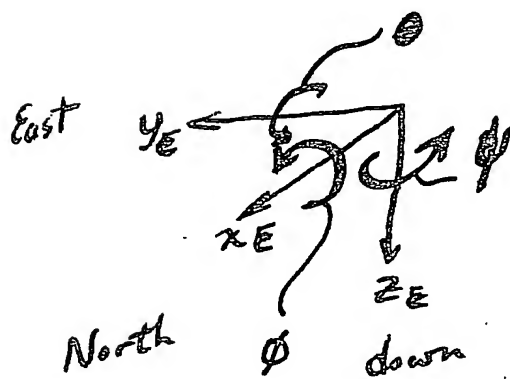 θ
East y_E
ψ
x_E
z_E
North φ down